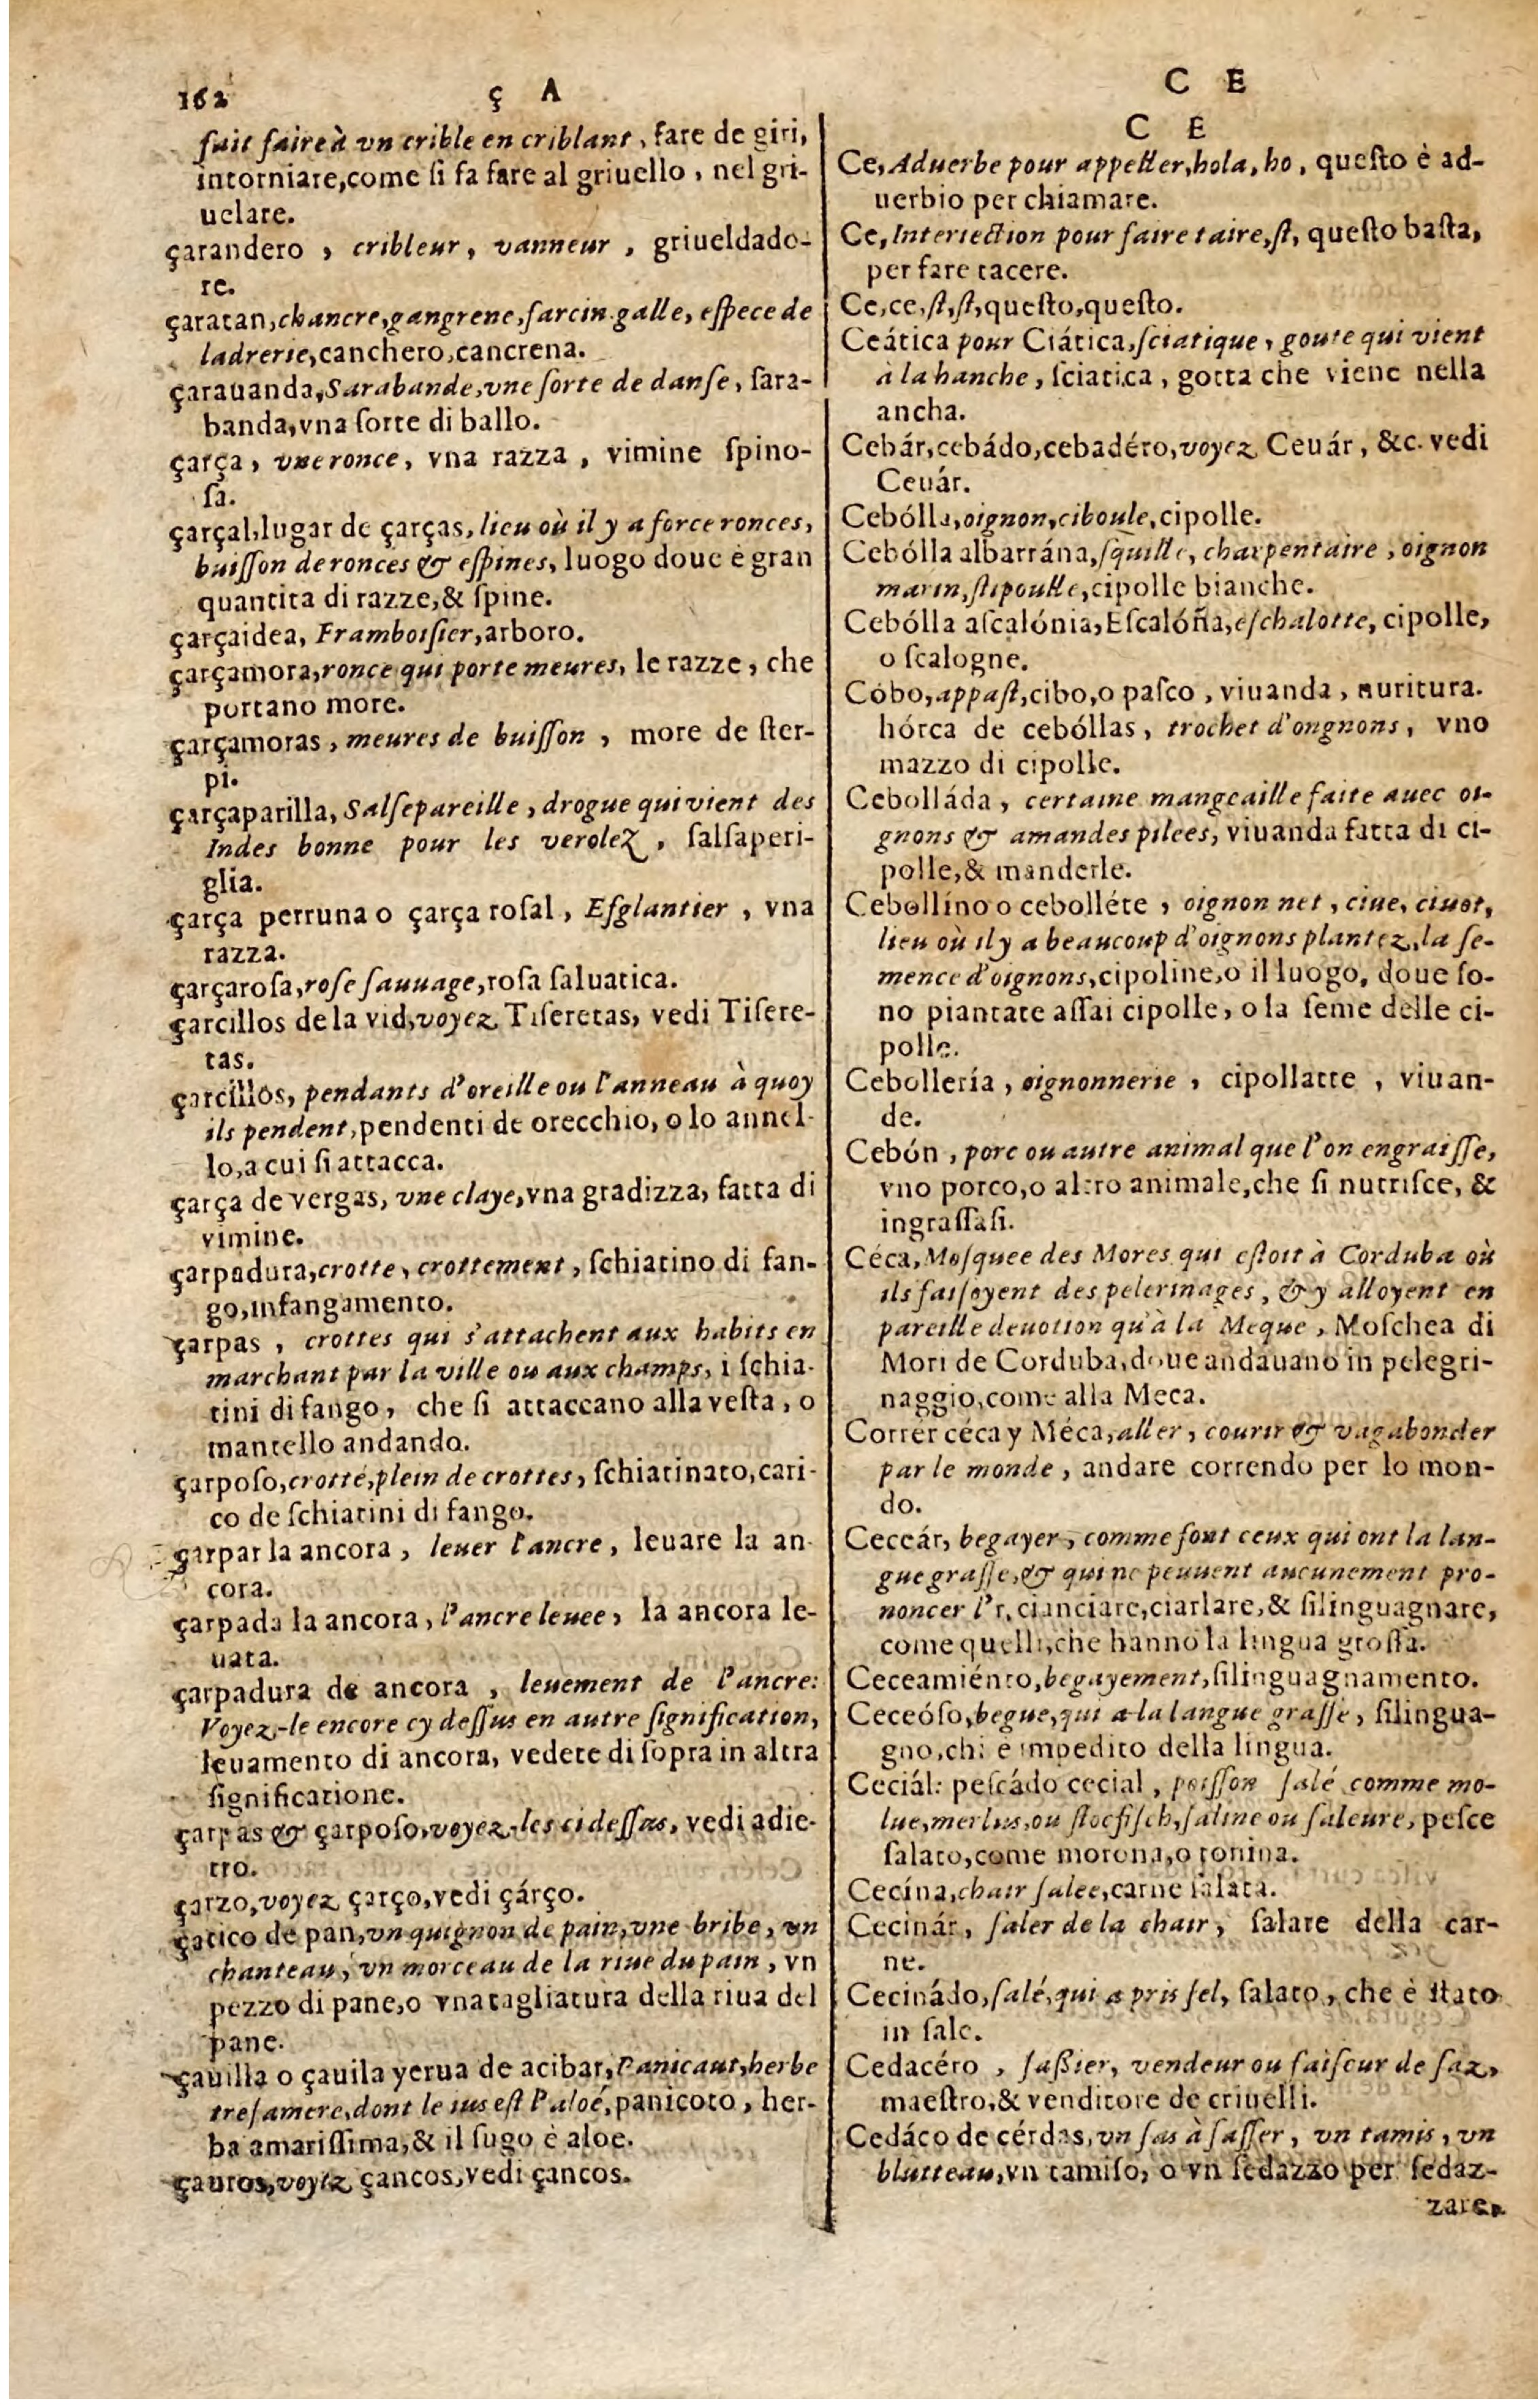 162
ç A
ſait faire à vn crible en criblant, fare de giri,
intorniare, come ſi fa fare al griuello, nel gri-
uelare.
çarandero, cribleur, vanneur, griueldado-
re.
çaratan, chancre, gangrene, farcin. galle, eſpece de
ladrerie, canchero, cancrena.
çarauanda, Sarabande, vne ſorte de danſe, ſara-
banda, vna ſorte di ballo.
çarça, vne ronce, vna razza, vimine ſpino-
ſa.
çarçal, lugar de çarças, lieu où il y a force ronces,
buiſſon de ronces & eſpines, luogo doue è gran
quantita di razze, & ſpine.
çarçaidea, Framboiſier, arboro.
çarçamora, ronce qui porte meures, le razze, che
portano more.
çarçamoras, meures de buiſſon, more de ſter-
pi.
çarçaparilla, Salſepareille, drogue qui vient des
Indes bonne pour les verolez, ſalſaperi-
glia.
çarça perruna o çarça roſal, Eſglantier, vna
razza.
çarçaroſa, roſe ſauuage, roſa ſaluatica.
çarcillos de la vid, voyez Tiſeretas, vedi Tiſere-
tas.
çarcillos, pendants d'oreille ou l'anneau à quoy
ils pendent, pendenti de orecchio, o lo annel-
lo, a cui ſi attacca.
çarça de vergas, vne claye, vna gradizza, fatta di
vimine.
çarpadura, crotte, crottement, ſchiatino di fan-
go, infangamento.
çarpas, crottes qui s'attachent aux habits en
marchant par la ville ou aux champs, i ſchia-
tini di fango, che ſi attaccano alla veſta, o
mantello andando.
çarpoſo, crotté, plein de crottes, ſchiatinato, cari-
co de ſchiatini di fango.
çarpar la ancora, leuer l'ancre, leuare la an-
cora.
çarpada la ancora, l'ancre leuee, la ancora le-
uata.
çarpadura de ancora, leuement de l'ancre:
Voyez-le encore cy deſſus en autre ſignification,
leuamento di ancora, vedete di ſopra in altra
ſignificatione.
çarpas & çarpoſo, voyez-les ci deſſus, vedi adie-
tro.
çarzo, voyez çarço, vedi çárço.
çatico de pan, vn quignon de pain, vne bribe, vn
chanteau, vn morceau de la riue du pain, vn
pezzo di pane, o vna tagliatura della riua del
pane.
çauilla o çauila yerua de acibar, Panicaut, herbe
treſamere, dont le ius eſt l'aloé, panicoto, her-
ba amariſſima, & il ſugo è aloe.
çauros, voyez çancos, vedi çancos.
C E
C E
Ce, Aduerbe pour appeller, hola, ho, queſto è ad-
uerbio per chiamare.
Ce, Interiection pour faire taire, ſt, queſto baſta,
per fare tacere.
Ce, ce, ſt, ſt, queſto, queſto.
Ceática pour Ciática, ſciatique, goute qui vient
a la hanche, ſciatica, gotta che viene nella
ancha.
Cebár, cebádo, cebadéro, voyez Ceuár, &c. vedi
Ceuár.
Cebólla, oignon, ciboule, cipolle.
Cebólla albarrána, ſquille, charpentaire, oignon
marin, ſtipoulle, cipolle bianche.
Cebólla aſcalónia, Eſcalóña, eſchalotte, cipolle,
o ſcalogne.
Cóbo, appaſt, cibo, o paſco, viuanda, nuritura.
hórca de cebóllas, trochet d'ongnons, vno
mazzo di cipolle.
Cebolláda, certaine mangeaille faite auec oi-
gnons & amandes pilees, viuanda fatta di ci-
polle, & manderle.
Cebollíno o cebolléte, oignonnet, ciue, ciuot,
lieu où il y a beaucoup d'oignons plantez, la ſe-
mence d'oignons, cipoline, o il luogo, doue ſo-
no piantate aſſai cipolle, o la ſeme delle ci-
polle.
Cebollería, oignonnerie, cipollatte, viuan-
de.
Cebón, porc ou autre animal que l'on engraiſſe,
vno porco, o altro animale, che ſi nutriſce, &
ingraſſaſi.
Céca, Moſquee des Mores qui eſtoit à Corduba où
ils faiſoyent des pelerinages, & y alloyent en
pareille deuotion qu'à la Meque, Moſchea di
Mori de Corduba, doue andauano in pelegri-
naggio, come alla Meca.
Correr céca y Méca, aller, courir & vagabonder
par le monde, andare correndo per lo mon-
do.
Ceceár, begayer, comme font ceux qui ont la lan-
gue graſſe, & qui ne peuuent aucunement pro-
noncer l'r, cianciare, ciarlare, & ſilinguagnare,
come quelli, che hanno la lingua groſſa.
Ceceamiénto, begayement, ſilinguagnamento.
Ceceóſo, begue, qui a la langue graſſe, ſilingua-
gno, chi è impedito della lingua.
Ceciál: peſcádo cecial, poiſſon ſalé comme mo-
lue, merlus, ou ſtocfiſch, ſaline ou ſaleure, peſce
ſalato, come morona, o tonina.
Cecína, chair ſalee, carne ſalata.
Cecinár, ſaler de la chair, ſalare della car-
ne.
Cecinádo, ſalé, qui a pris ſel, ſalato, che è ſtato
in ſale.
Cedacéro, ſaßier, vendeur ou faiſeur de ſaz,
maeſtro, & venditore de criuelli.
Cedáço de cérdas, vn ſas à ſaſſer, vn tamis, vn
blutteau, vn tamiſo, o vn ſedazzo per ſedaz-
zare,